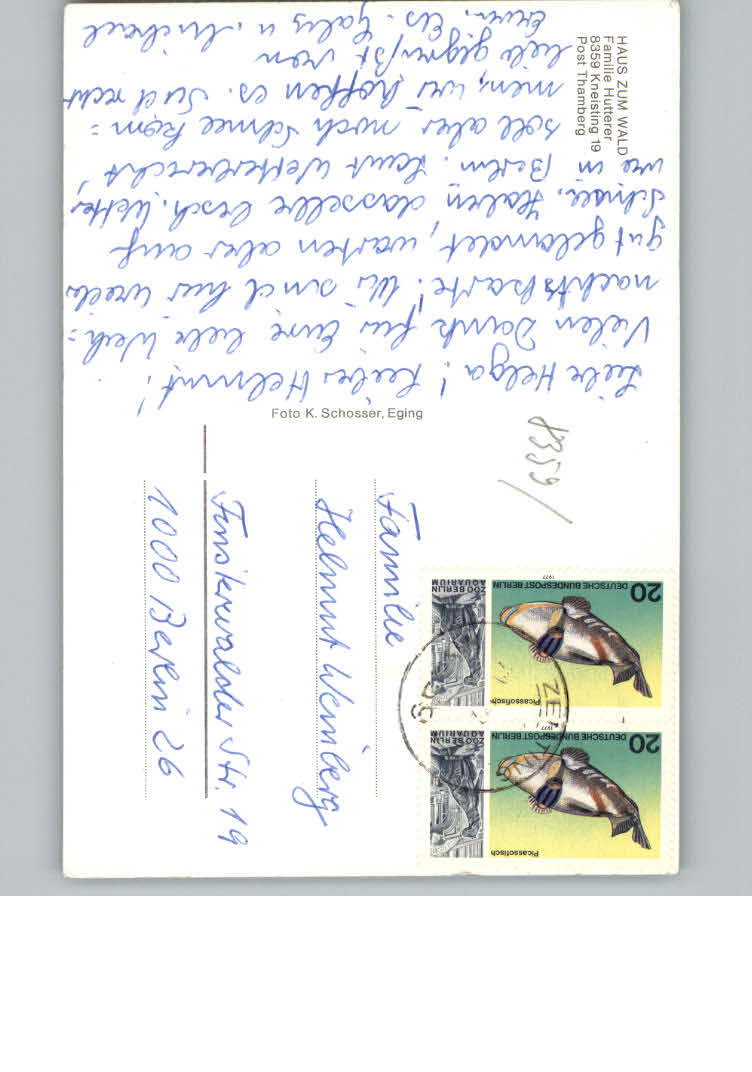 HAUS ZUM WALD
Familie Hutterer
8359 Kneisting 19
Post Thamberg
Liebe Helga! Lieber Helmut!
Vielen Dank für Eure liebe Weih=
nachtskarte! Wir sind hier wieder
gut gelandet, warten aber auf
Schnee. Haben dasselbe besch. Wetter
wie in Berlin. Laut Wetterbericht,
soll aber noch Schnee kom=
men, wir hoffen es. Seid recht
lieb gegrüßt von
Gaby u. Michael
Foto K. Schosser, Eging
8359/
Familie
Helmut Weinberg
Finsterwalder Str. 19
1000 Berlin 26
20
DEUTSCHE BUNDESPOST BERLIN
1977
Picassofisch
ZOO BERLIN
AQUARIUM
20
DEUTSCHE BUNDESPOST BERLIN
1977
Picassofisch
ZOO BERLIN
AQUARIUM